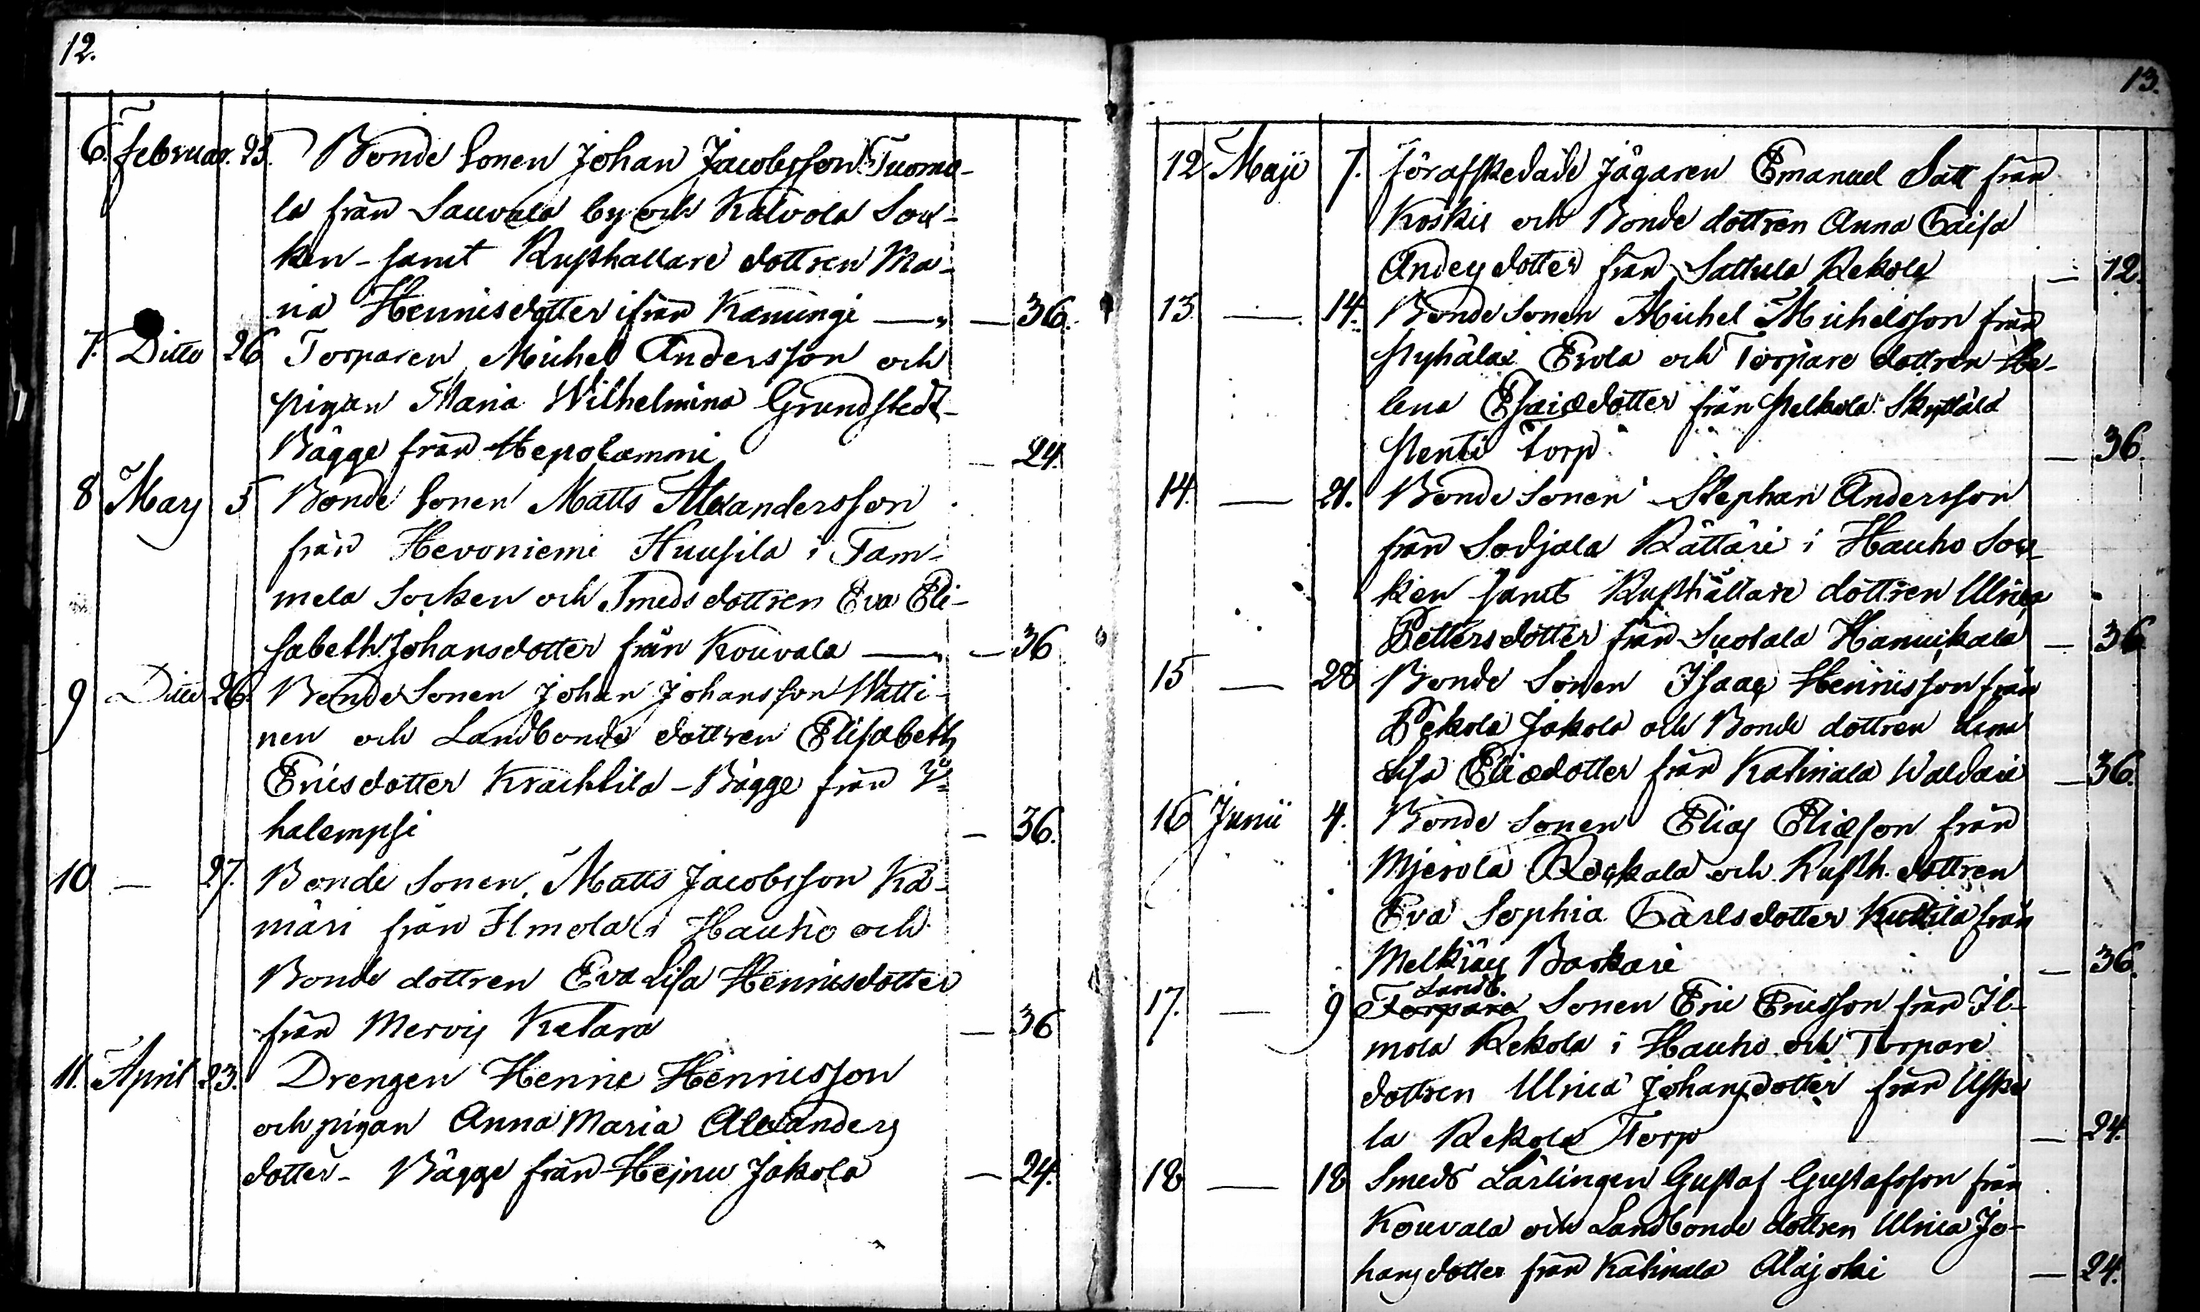 12.
6. Februar. 23. Bonde Sonen Johan Jacobsson Tuomo-
la från Sauvala by och Kalvola Sock-
ken - samt Rusthållare dottren Ma-
ria Henricsdotter ifrån Kanungi — 36.
7. Ditto 26 Torparen Michel Andersson och
pigan Maria Wilhelmina Grundstedt -
Bägge från Hepolammi — 24.
8 Marj 5 Bonde Sonen Matts Alexandersson
från Hevoniemi Huusila i Tam-
mela Socken och Smeds dottren Eva Eli-
sabeth Johansdotter från Kouvala — 36
9 Ditto 26. Bonde Sonen Johan Johansson Watti-
nen och Landbonde dottren Elisabeth
Ericsdotter Krachtila - Bägge från
halempsi — 36.
10 — 27. Bonde Sonen Matts Jacobsson Kä-
märi från Ilmola i Hauho och
Bonde dottren Eva Lisa Henricsdotter
från Mervis Katara — 36
11. April 23. Drengen Henric Henricsson
och pigan Anna Maria Alexanders
dotter - Bägge från Hejnu Jakola — 24.
13.
12. Maji 7. förafskedade Jägaren Emanuel Sått från
Koskis och Bonde dottren Anna Caisa
Anders dotter från Sattula Rekola — 12.
13 — 14. Bonde Sonen Michel Michelsson från
Pyhälax Erola och Torpare dottren He-
lena Esaiædotter från Pelkola Skyttälä
Pentti torp — 36.
14. — 21. Bonde Sonen Stephan Andersson
från Sodjala Rättäri i Hauho Soc-
ken samt Rusthållare dottren Ulrica
Pettersdotter från Suotala Hanuikala — 36
15 — 28 Bonde Sonen Isaac Henricsson från
Pekola Jakola och Bonde dottren
Lisa Eliædotter från Katinala Waldari — 36.
16 Junii 4. Bonde Sonen Elias Eliæson från
Mjerola Rockala och Rusth. dottren
Eva Sophia Carlsdotter Kuttila från
Melkiäis Backari — 36.
Landb.
17. — 9 Torpare Sonen Eric Ericsson från Il-
mola Rekola i Hauho och Torpare
dottren Ulrica Johansdotter från Uske
la Rekola Torp — 24.
18 — 18 Smeds Lärlingen Gustaf Gustafsson från
Kouvala och Landbonde dottren Ulrica Jo-
hans dotter från Katinala Alajoki — 24.